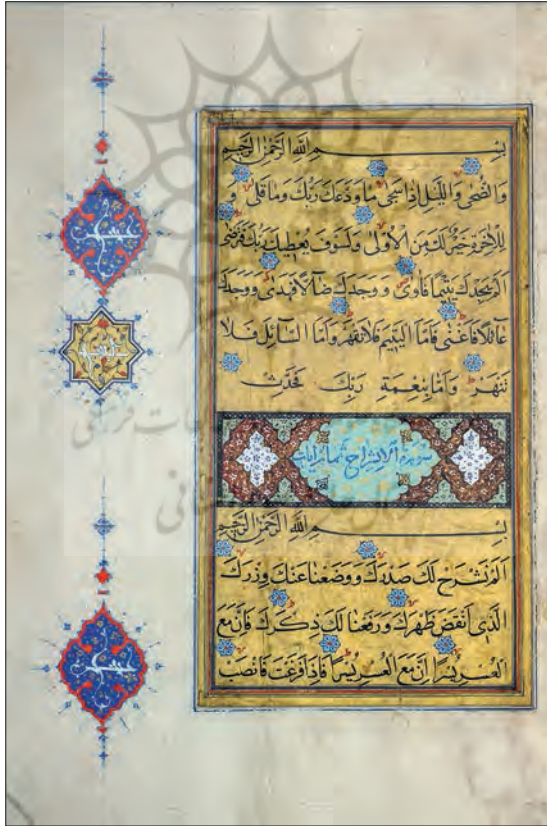 بِسْمِ اللَّهِ الرَّحْمٰنِ الرَّحِيمِ
وَالضُّحٰى وَاللَّيْلِ اِذَا سَجٰى مَا وَدَّعَكَ رَبُّكَ وَمَا قَلٰى وَ
لَلْاٰخِرَةُ خَيْرٌ لَكَ مِنَ الْاُولٰى وَلَسَوْفَ يُعْطِيكَ رَبُّكَ فَتَرْضٰى
اَلَمْ يَجِدْكَ يَتِيمًا فَاٰوٰى وَوَجَدَكَ ضَآلًّا فَهَدٰى وَوَجَدَكَ
عَآئِلًا فَاَغْنٰى فَاَمَّا الْيَتِيمَ فَلَا تَقْهَرْ وَاَمَّا السَّآئِلَ فَلَا
تَنْهَرْ وَاَمَّا بِنِعْمَةِ رَبِّكَ فَحَدِّثْ
سورة الانشراح ثمان ايات
بِسْمِ اللَّهِ الرَّحْمٰنِ الرَّحِيمِ
اَلَمْ نَشْرَحْ لَكَ صَدْرَكَ وَوَضَعْنَا عَنْكَ وِزْرَكَ
الَّذِى اَنْقَضَ ظَهْرَكَ وَرَفَعْنَا لَكَ ذِكْرَكَ فَاِنَّ مَعَ
الْعُسْرِ يُسْرًا اِنَّ مَعَ الْعُسْرِ يُسْرًا فَاِذَا فَرَغْتَ فَانْصَبْ